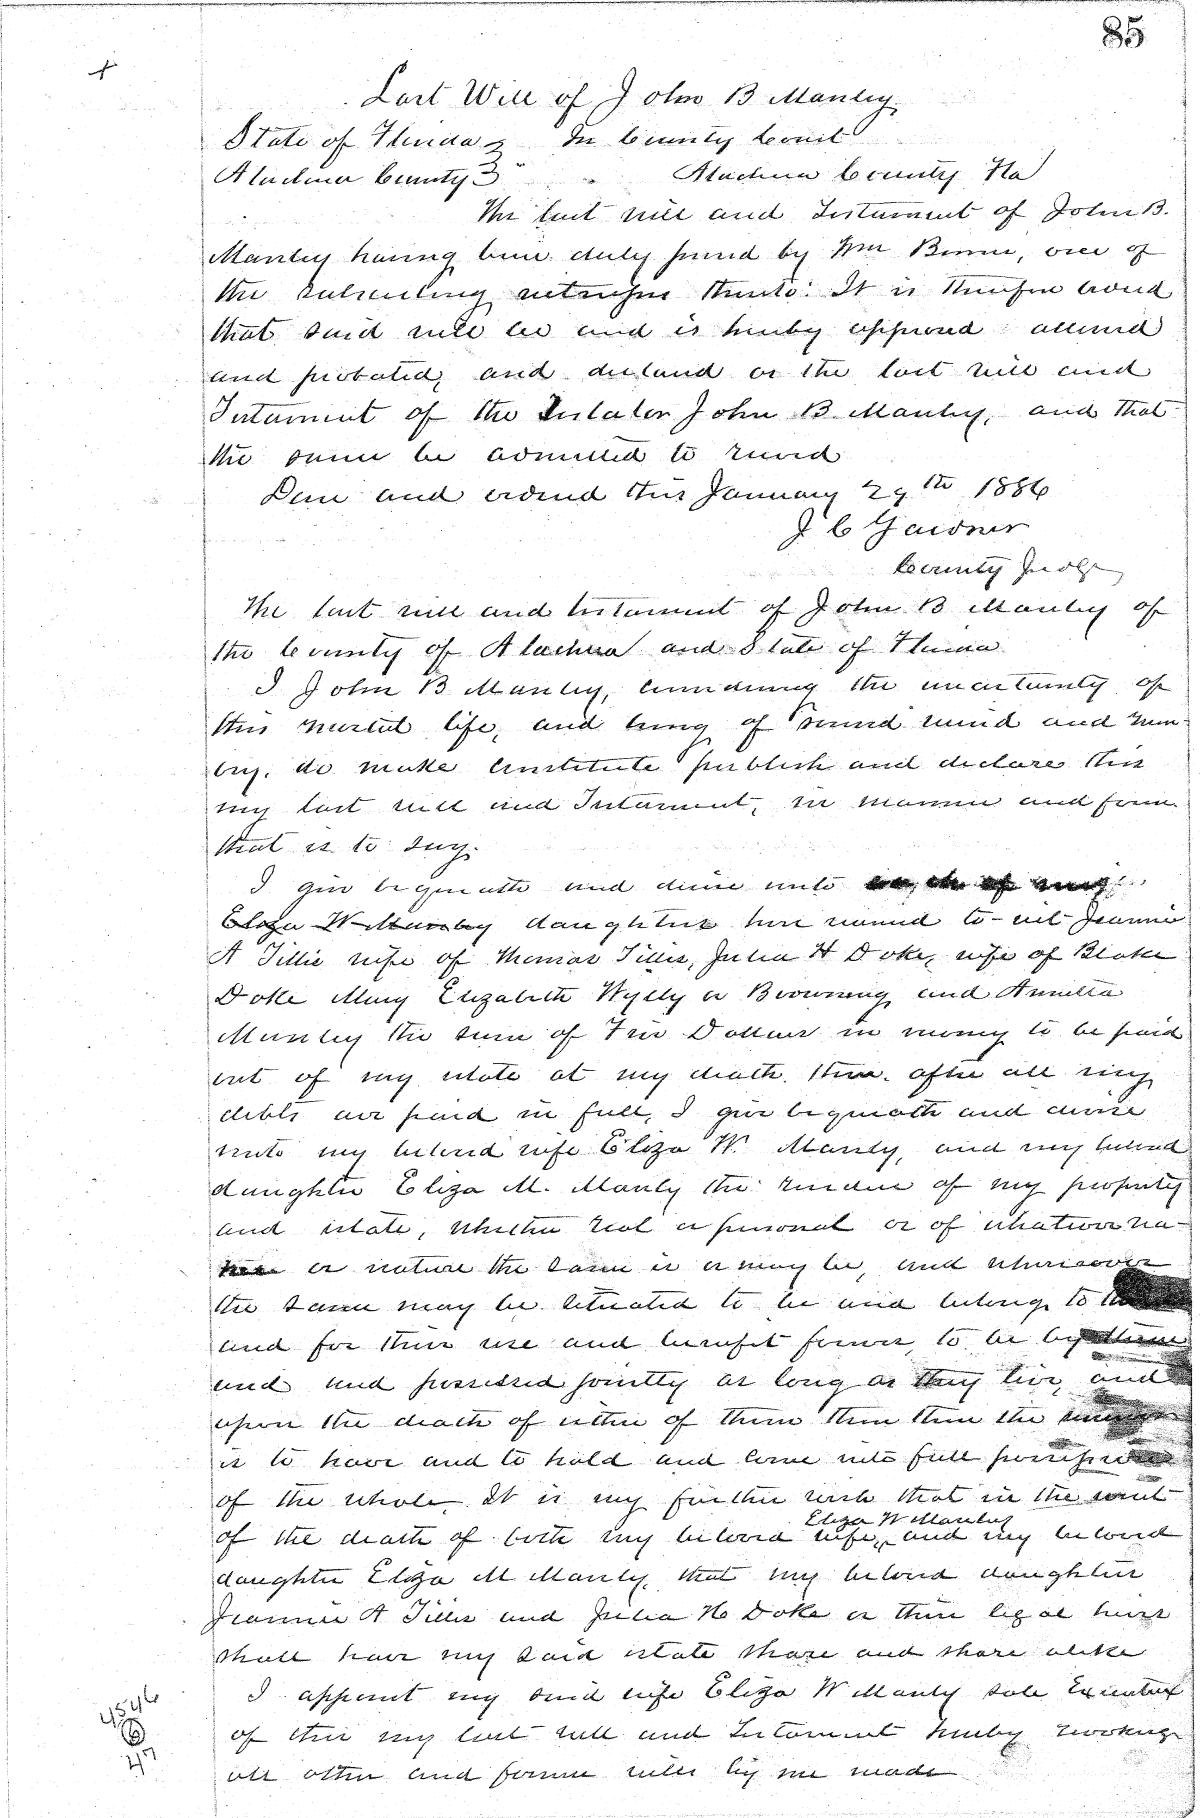 85
Last Will of John B Manley
State of Florida } In County Court
Alachua County } Alachua County Fla
The last will and Testament of John B.
Manley having been duly proved by Wm Birnie, one of
the subscribing witnesses thereto. It is therefore ordered
that said will be and is hereby approved allowed
and probated, and declared as the last will and
Testament of the Testator John B Manley, and that
the same be admitted to record
Done and ordered this January 29th 1886
J C Gardner
County Judge
The last will and testament of John B Manley of
the County of Alachua and State of Florida
I John B Manley, considering the uncertainty of
this mortal life, and being of sound mind and mem-
ory. do make constitute publish and declare this
my last will and Testament, in manner and form
that is to say.
I give bequeath and devise unto each of my
Eliza W Manley daughters here named to-wit Jeannie
A Tillis wife of Thomas Tillis, Julia H Doke, wife of Blake
Doke Mary Elizabeth Wylly or Browning and Amelia
Manley the sum of Five Dollars in money to be paid
out of my estate at my death. then. after all my
debts are paid in full, I give bequeath and devise
unto my beloved wife Eliza W. Manly, and my beloved
daughter Eliza M. Manly the residue of my property
and estate, whether real or personal or of whatsoever na-
or nature the same is or may be, and wheresoever
the same may be situated to be and belong to
and for their use and benefit forever, to be by them
and possessed jointly as long as they live, and
upon the death of either of them then the survivor
is to have and to hold and come into full possession
of the whole. It is my further wish that in the event
Eliza W Manley
of the death of both my beloved wife, and my beloved
daughter Eliza M Manly, that my beloved daughters
Jeannie A Tillis and Julia H Doke or their legal heirs
shall have my said estate share and share alike
I appoint my said wife Eliza W Manly sole Executrix
of this my last will and Testament hereby revoking
all other and former wills by me made
4546
6
47